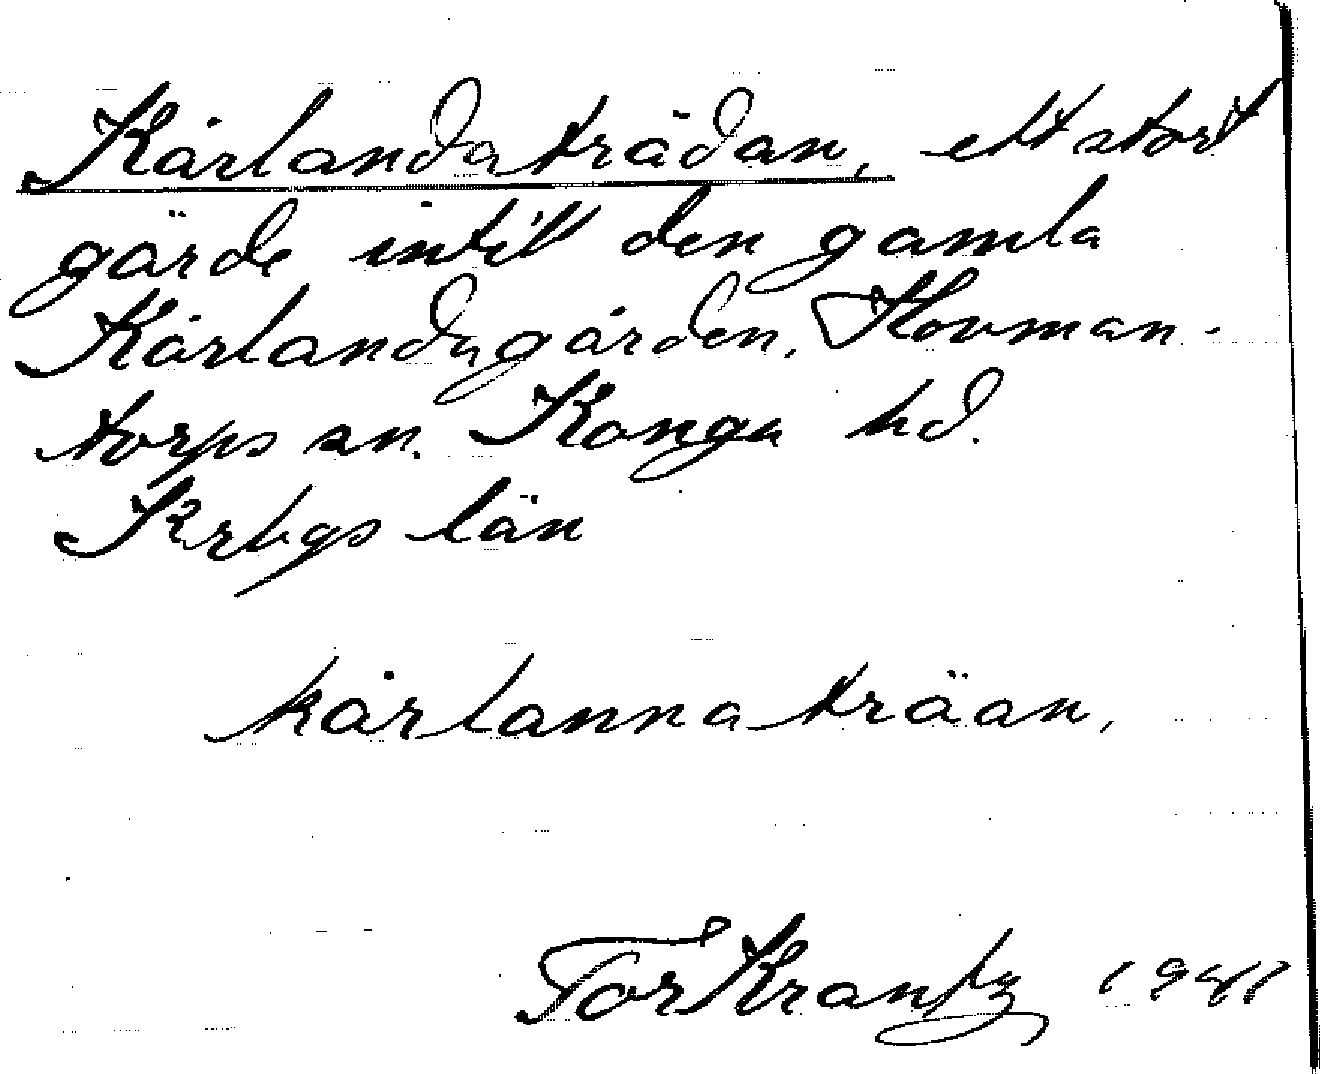 Kårlandaträdan, ett stort
gärde intill den gamla
Kårlandagården. Hovman-
torps sn. Konga hd.
Krbgs län
kårlannaträan,
Tor Krantz 1941